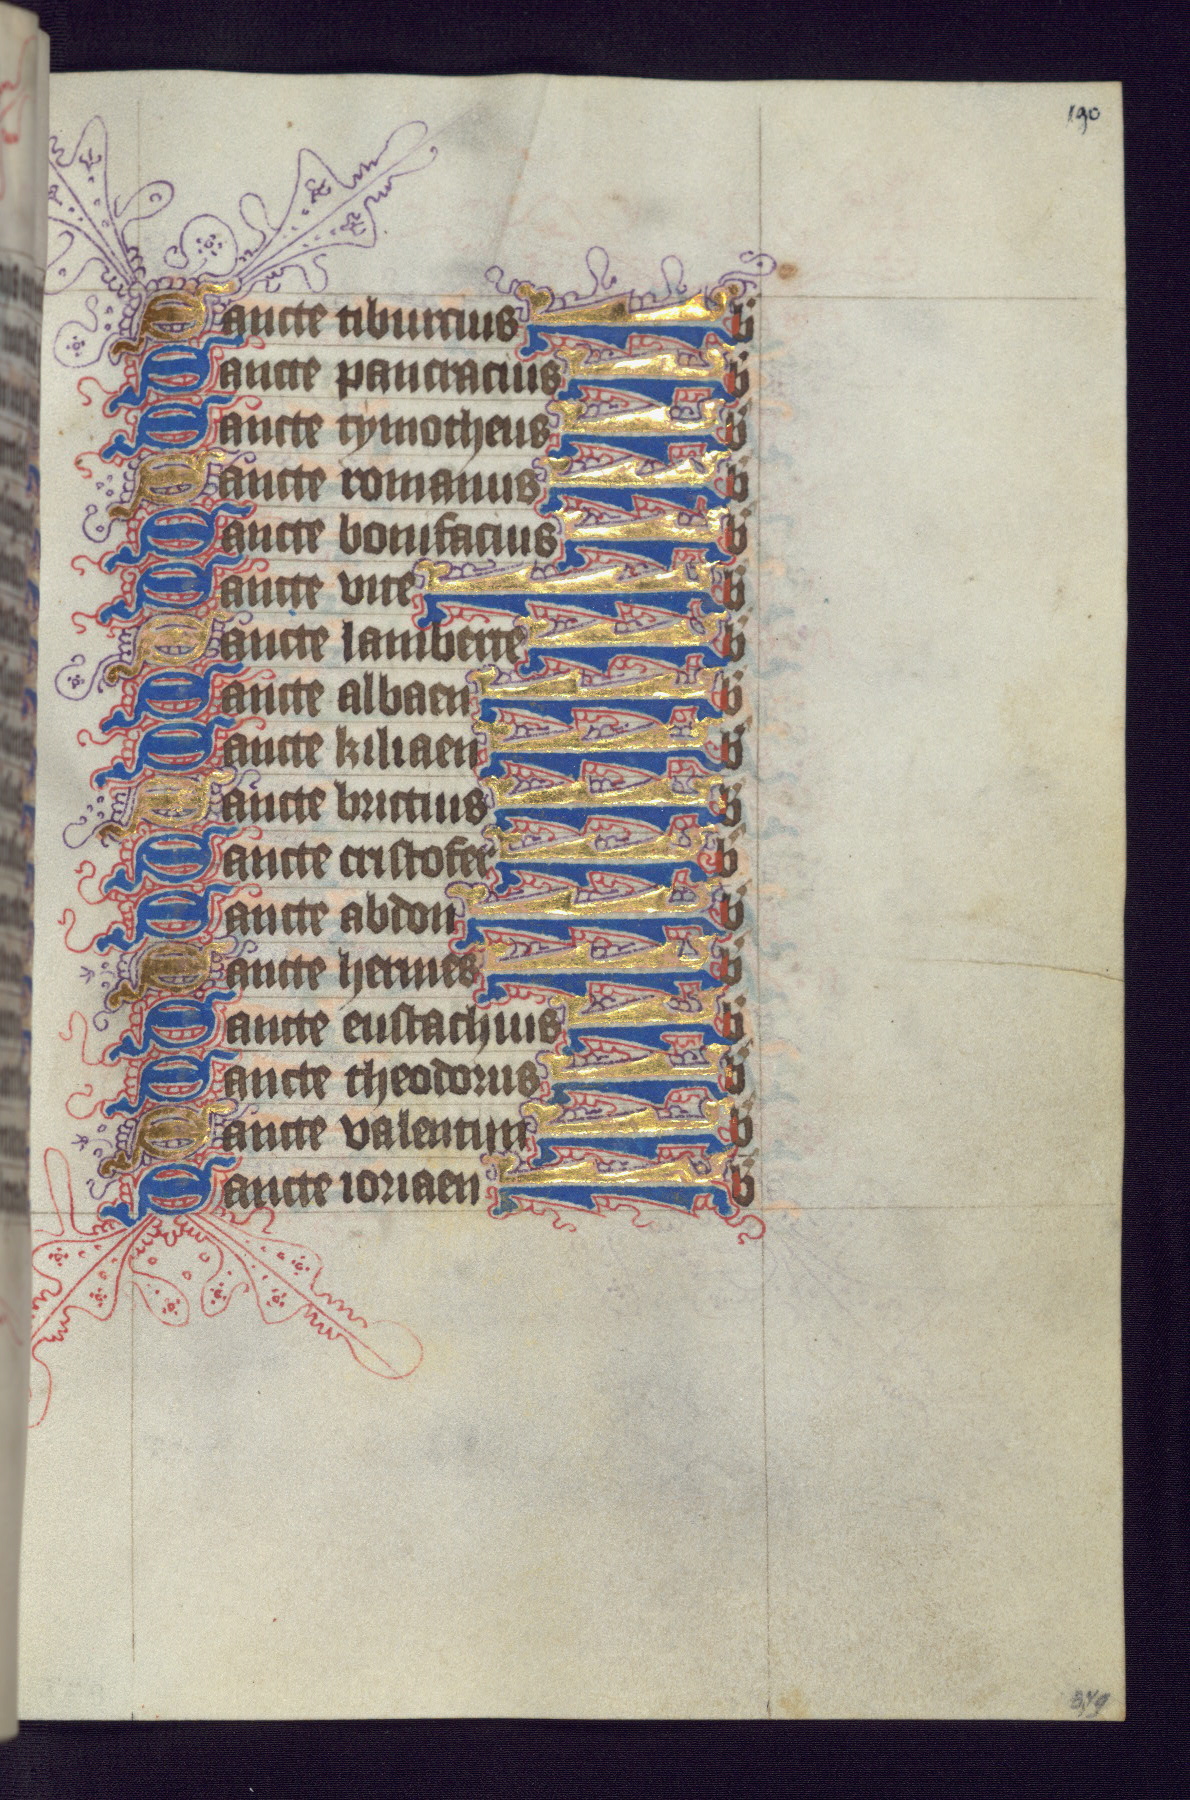 190
Sancte tiburcius b
Sancte pancracius b
Sancte tymotheus b
Sancte romanus b
Sancte bonifacius b
Sancte vite b
Sancte lamberte b
Sancte albaen b
Sancte kiliaen b
Sancte brictius b
Sancte cristofer b
Sancte abdon b
Sancte hermes b
Sancte eustachius b
Sancte theodorus b
Sancte valentijn b
Sancte ioriaen b
379